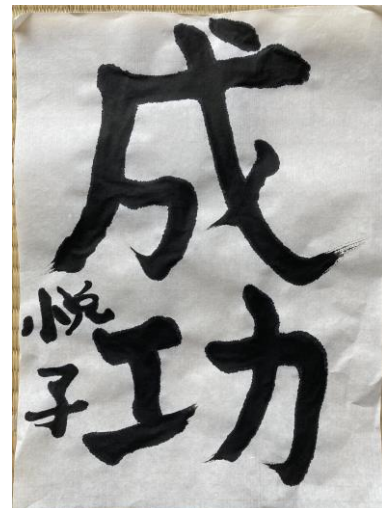 成功
悦子